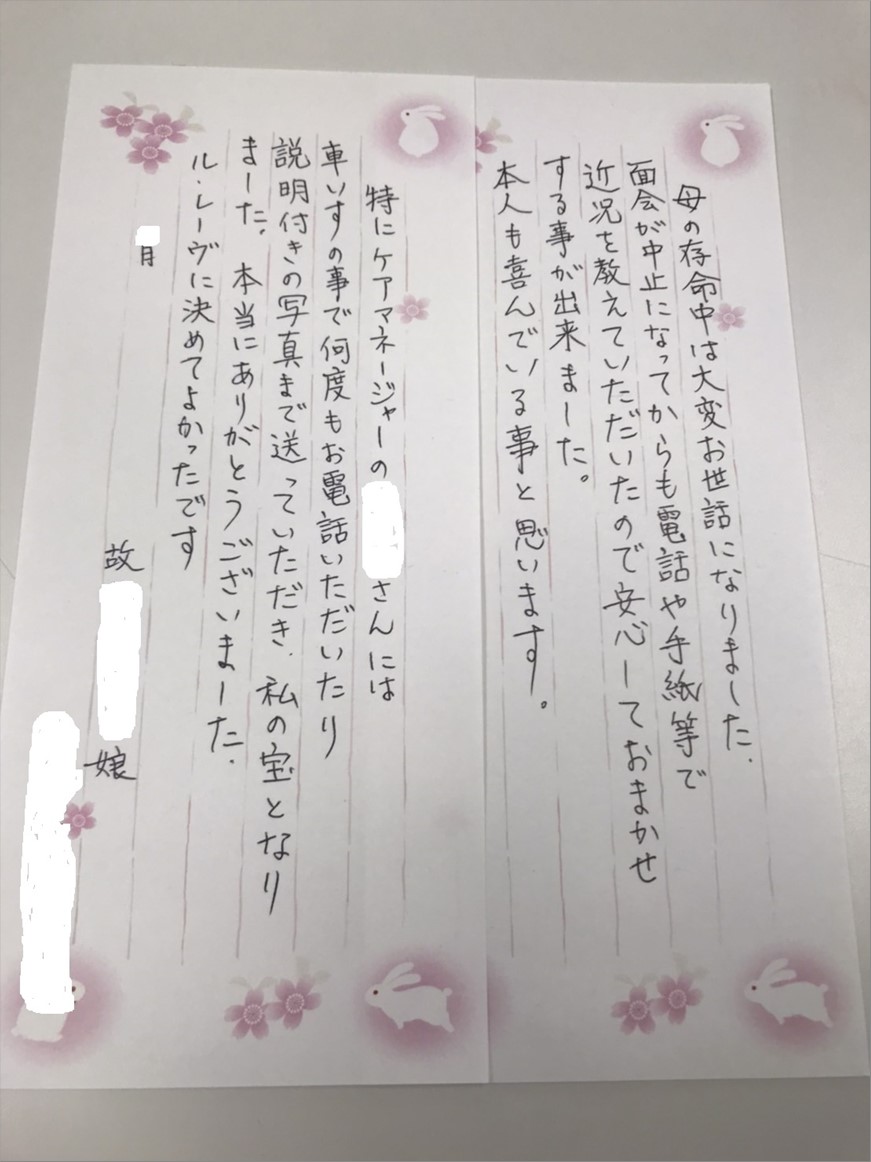 母の存命中は大変お世話になりました.
面会が中止になってからも電話や手紙等で
近況を教えていただいたので安心しておまかせ
する事が出来ました。
本人も喜んでいる事と思います。
特にケアマネージャーの
さんには
車いすの事で何度もお電話いただいたり
説明付きの写真まで送っていただき.私の宝となり
ました.本当にありがとうございました.
ル・レーヴに決めてよかったです
月
故
娘